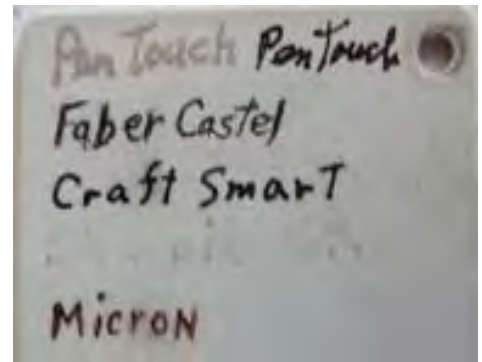 Pen Touch Pen Touch
Faber Castel
Craft Smart
Micron